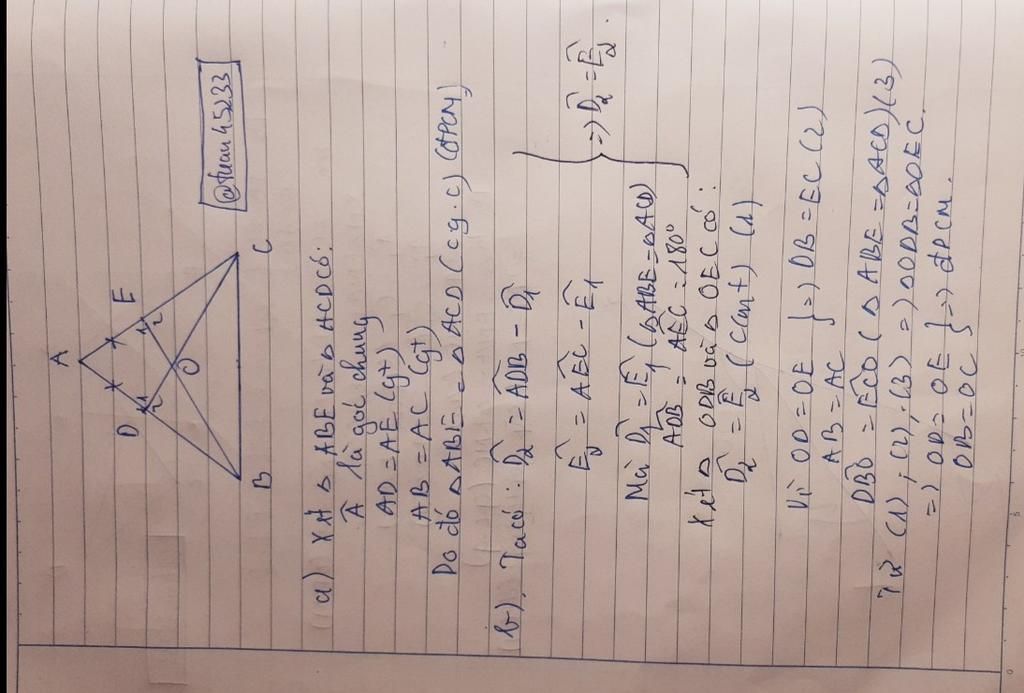 A
D
E
1
2
1
2
O
B
C
@tuan45233
a) Xét Δ ABE và Δ ACD có:
Â là góc chung
AD = AE (gt)
AB = AC (gt)
Do đó Δ ABE = Δ ACD (c.g.c) (ĐPCM)
b), Ta có: D̂₂ = ADB̂ - D̂₁
Ê₂ = AEĈ - Ê₁
Mà D̂₁ = Ê₁ (Δ ABE = Δ ACD)
ADB̂ = AEĈ = 180°
=> D̂₂ = Ê₂.
Xét Δ ODB và Δ OEC có:
D̂₂ = Ê₂ (cmt) (1)
Vì OD = OE
AB = AC } => DB = EC (2)
DBÔ = ECÔ (Δ ABE = Δ ACD) (3)
Từ (1), (2), (3) => Δ ODB = Δ OEC.
=> OD = OE
OB = OC } => ĐPCM.